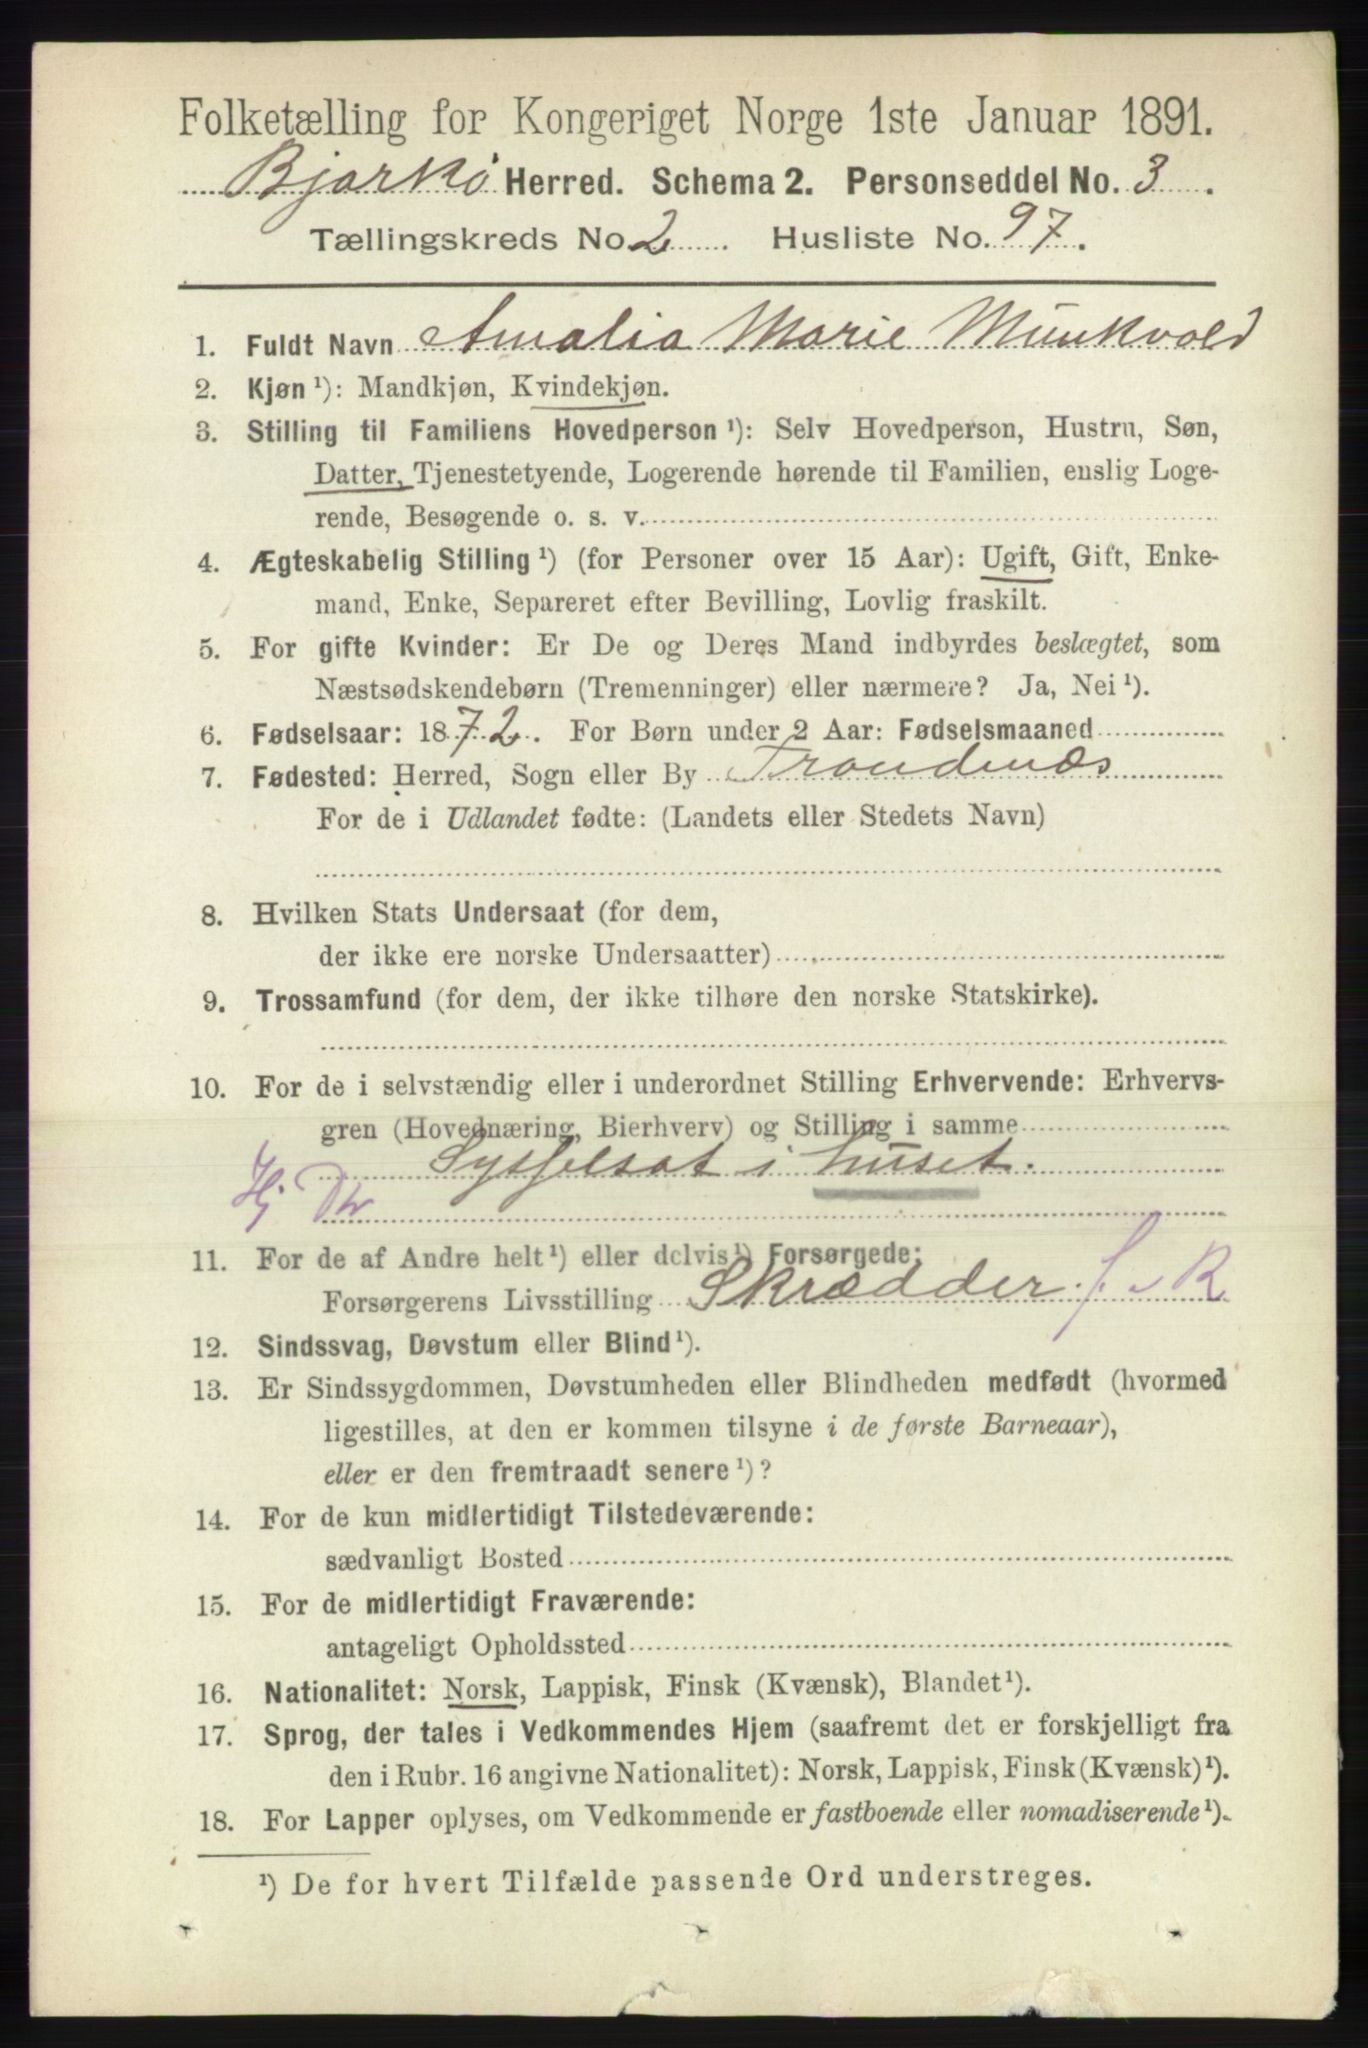 Folketælling for Kongeriget Norge 1ste Januar 1891.
Bjarkö Herred. Schema 2. Personseddel No. 3.
Tællingskreds No. 2. Husliste No. 97.
1. Fuldt Navn Amalia Marie Munkvold
2. Kjøn ¹): Mandkjøn, Kvindekjøn.
3. Stilling til Familiens Hovedperson ¹): Selv Hovedperson, Hustru, Søn,
Datter, Tjenestetyende, Logerende hørende til Familien, enslig Loge-
rende, Besøgende o. s. v.
4. Ægteskabelig Stilling ¹) (for Personer over 15 Aar): Ugift, Gift, Enke-
mand, Enke, Separeret efter Bevilling, Lovlig fraskilt.
5. For gifte Kvinder: Er De og Deres Mand indbyrdes beslægtet, som
Næstsødskendebørn (Tremenninger) eller nærmere? Ja, Nei ¹).
6. Fødselsaar: 1872. For Børn under 2 Aar: Fødselsmaaned
7. Fødested: Herred, Sogn eller By Trondenæs
For de i Udlandet fødte: (Landets eller Stedets Navn)
8. Hvilken Stats Undersaat (for dem,
der ikke ere norske Undersaatter)
9. Trossamfund (for dem, der ikke tilhøre den norske Statskirke).
10. For de i selvstændig eller i underordnet Stilling Erhvervende: Erhvervs-
gren (Hovednæring, Bierhverv) og Stilling i samme
Sysselsat i huset.
Hj Dtr
11. For de af Andre helt ¹) eller delvis ¹) Forsørgede:
Forsørgerens Livsstilling Skrædder. f. v R
12. Sindssvag, Døvstum eller Blind ¹).
13. Er Sindssygdommen, Døvstumheden eller Blindheden medfødt (hvormed
ligestilles, at den er kommen tilsyne i de første Barneaar),
eller er den fremtraadt senere ¹)?
14. For de kun midlertidigt Tilstedeværende:
sædvanligt Bosted
15. For de midlertidigt Fraværende:
antageligt Opholdssted
16. Nationalitet: Norsk, Lappisk, Finsk (Kvænsk), Blandet ¹).
17. Sprog, der tales i Vedkommendes Hjem (saafremt det er forskjelligt fra
den i Rubr. 16 angivne Nationalitet): Norsk, Lappisk, Finsk (Kvænsk) ¹).
18. For Lapper oplyses, om Vedkommende er fastboende eller nomadiserende ¹).
¹) De for hvert Tilfælde passende Ord understreges.